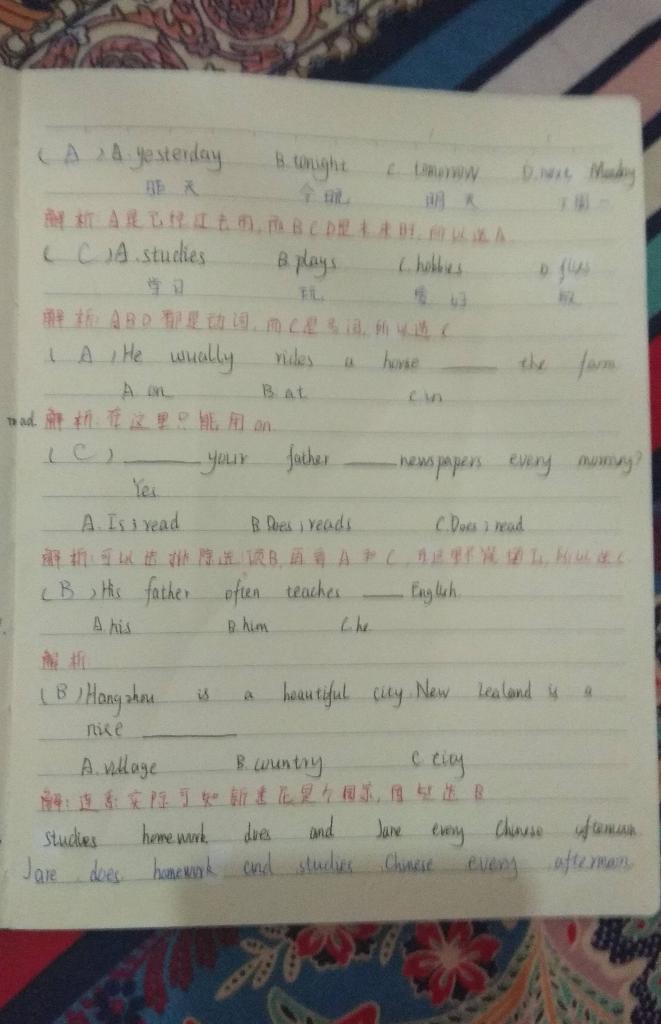 ( A ) A. yesterday B. tonight C. tomorrow D. next Monday
昨天 今晚 明天 下周一
解析: A是已经过去的, 而BCD是未来时, 所以选A
( C ) A. studies B. plays C. hobbies D. flies
学习 玩 爱好
解析: ABD都是动词, 而C是名词, 所以选C
( A ) He usually rides a horse ____ the farm
A on B. at C. in
read. 解析: 在这里只能用on
( C ) ____ your father ____ newspapers every morning?
Yes
A. Is ; read B. Does ; reads C. Does ; read
解析: 可以先排除选项B, 再看A和C, 在这里不能填Is, 所以选C
( B ) His father often teaches ____ English.
A. his B. him C. he
解析
( B ) Hangzhou is a beautiful city. New Zealand is a
nice ____
A. village B. country C. city
解: 连系实际可知新西兰是个国家, 选B
studies homework does and Jane every Chinese afternoon
Jane does homework and studies Chinese every afternoon